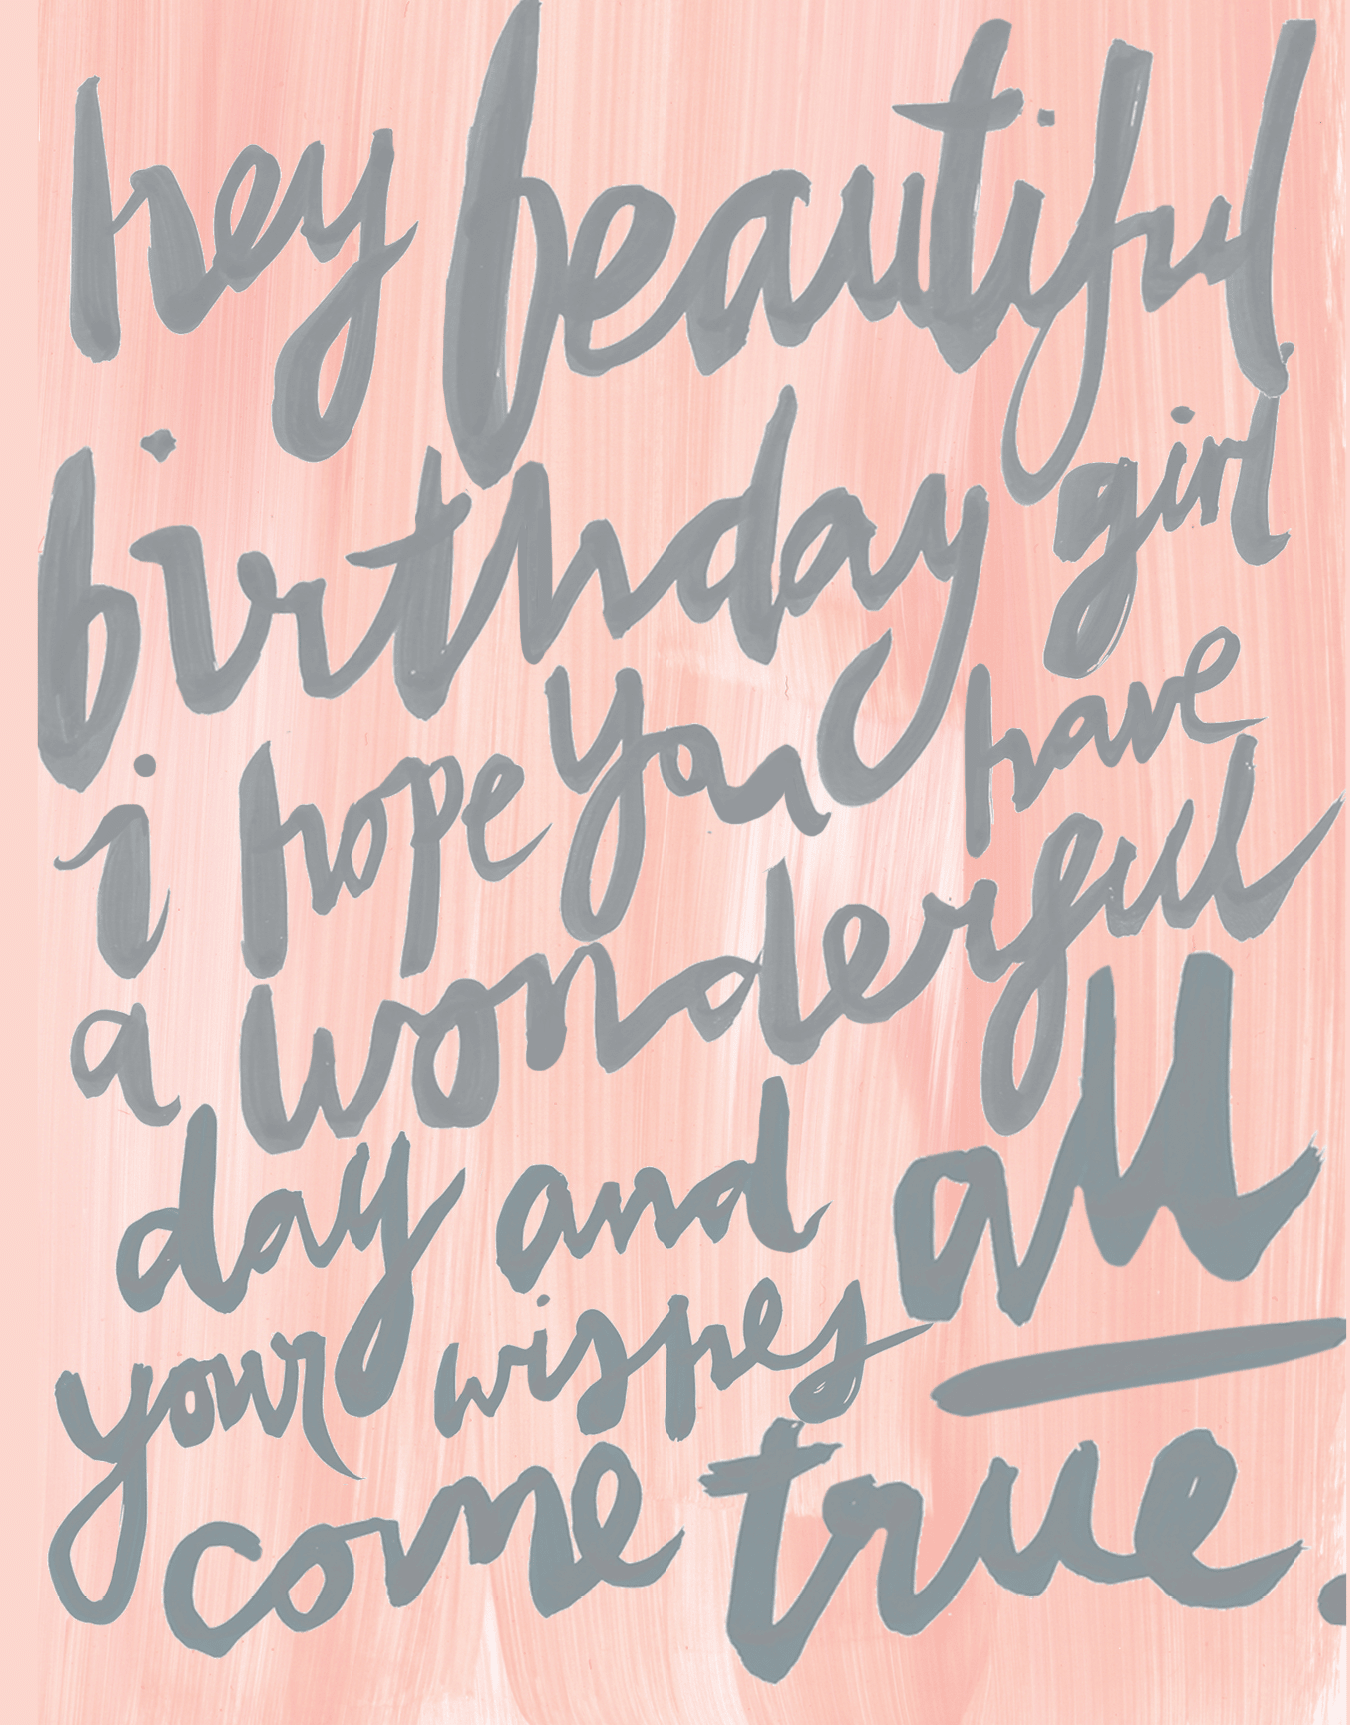 hey beautiful
birthday girl
i hope you have
a wonderful
day and all
your wishes
come true.